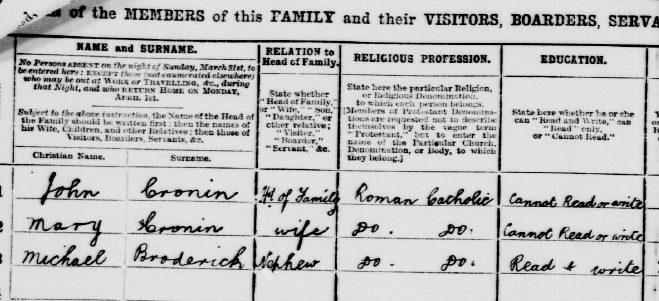 of the MEMBERS of this FAMILY and their VISITORS, BOARDERS, SERVA
NAME and SURNAME.
No Persons ABSENT on the night of Sunday, March 31st, to
be entered here; EXCEPT those (not enumerated elsewhere)
who may be out at WORK or TRAVELLING, &c., during
that Night, and who RETURN HOME ON MONDAY,
APRIL 1st.
Subject to the above instruction, the Name of the Head of
the Family should be written first; then the names of
his Wife, Children, and other Relatives; then those of
Visitors, Boarders, Servants, &c.
Christian Name. Surname.
RELATION to
Head of Family.
State whether
"Head of Family,"
or "Wife," "Son,"
"Daughter," or
other relative;
"Visitor,"
"Boarder,"
"Servant," &c.
RELIGIOUS PROFESSION.
State here the particular Religion,
or Religious Denomination,
to which each person belongs.
[Members of Protestant Denomina-
tions are requested not to describe
themselves by the vague term
"Protestant," but to enter the
name of the Particular Church,
Denomination, or Body, to which
they belong.]
EDUCATION.
State here whether he or she
can "Read and Write," can
"Read" only,
or "Cannot Read."
John Cronin Hd of Family Roman Catholic Cannot Read or write
2 Mary Cronin wife Do. Do. Cannot Read or write
3 Michael Broderick Nephew Do. Do. Read & write